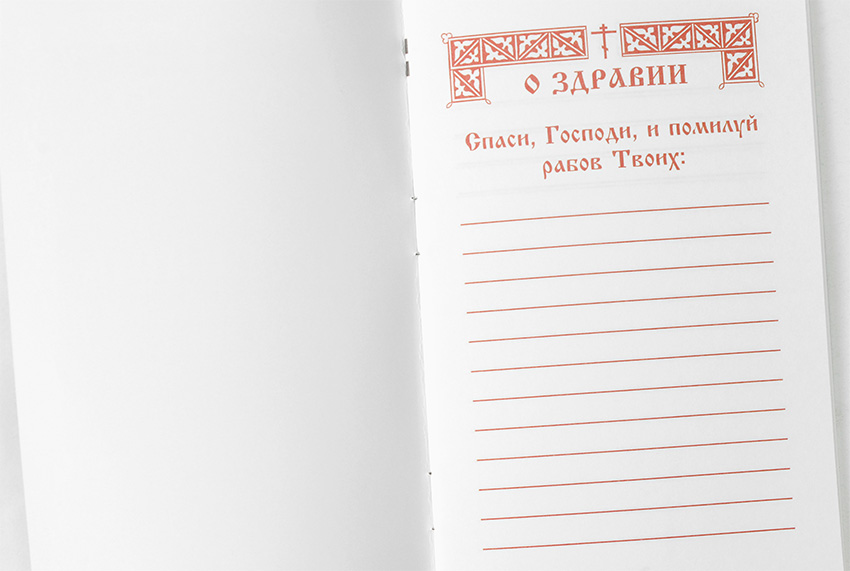 О ЗДРАВИИ
Спаси, Господи, и помилуй
рабов Твоих: